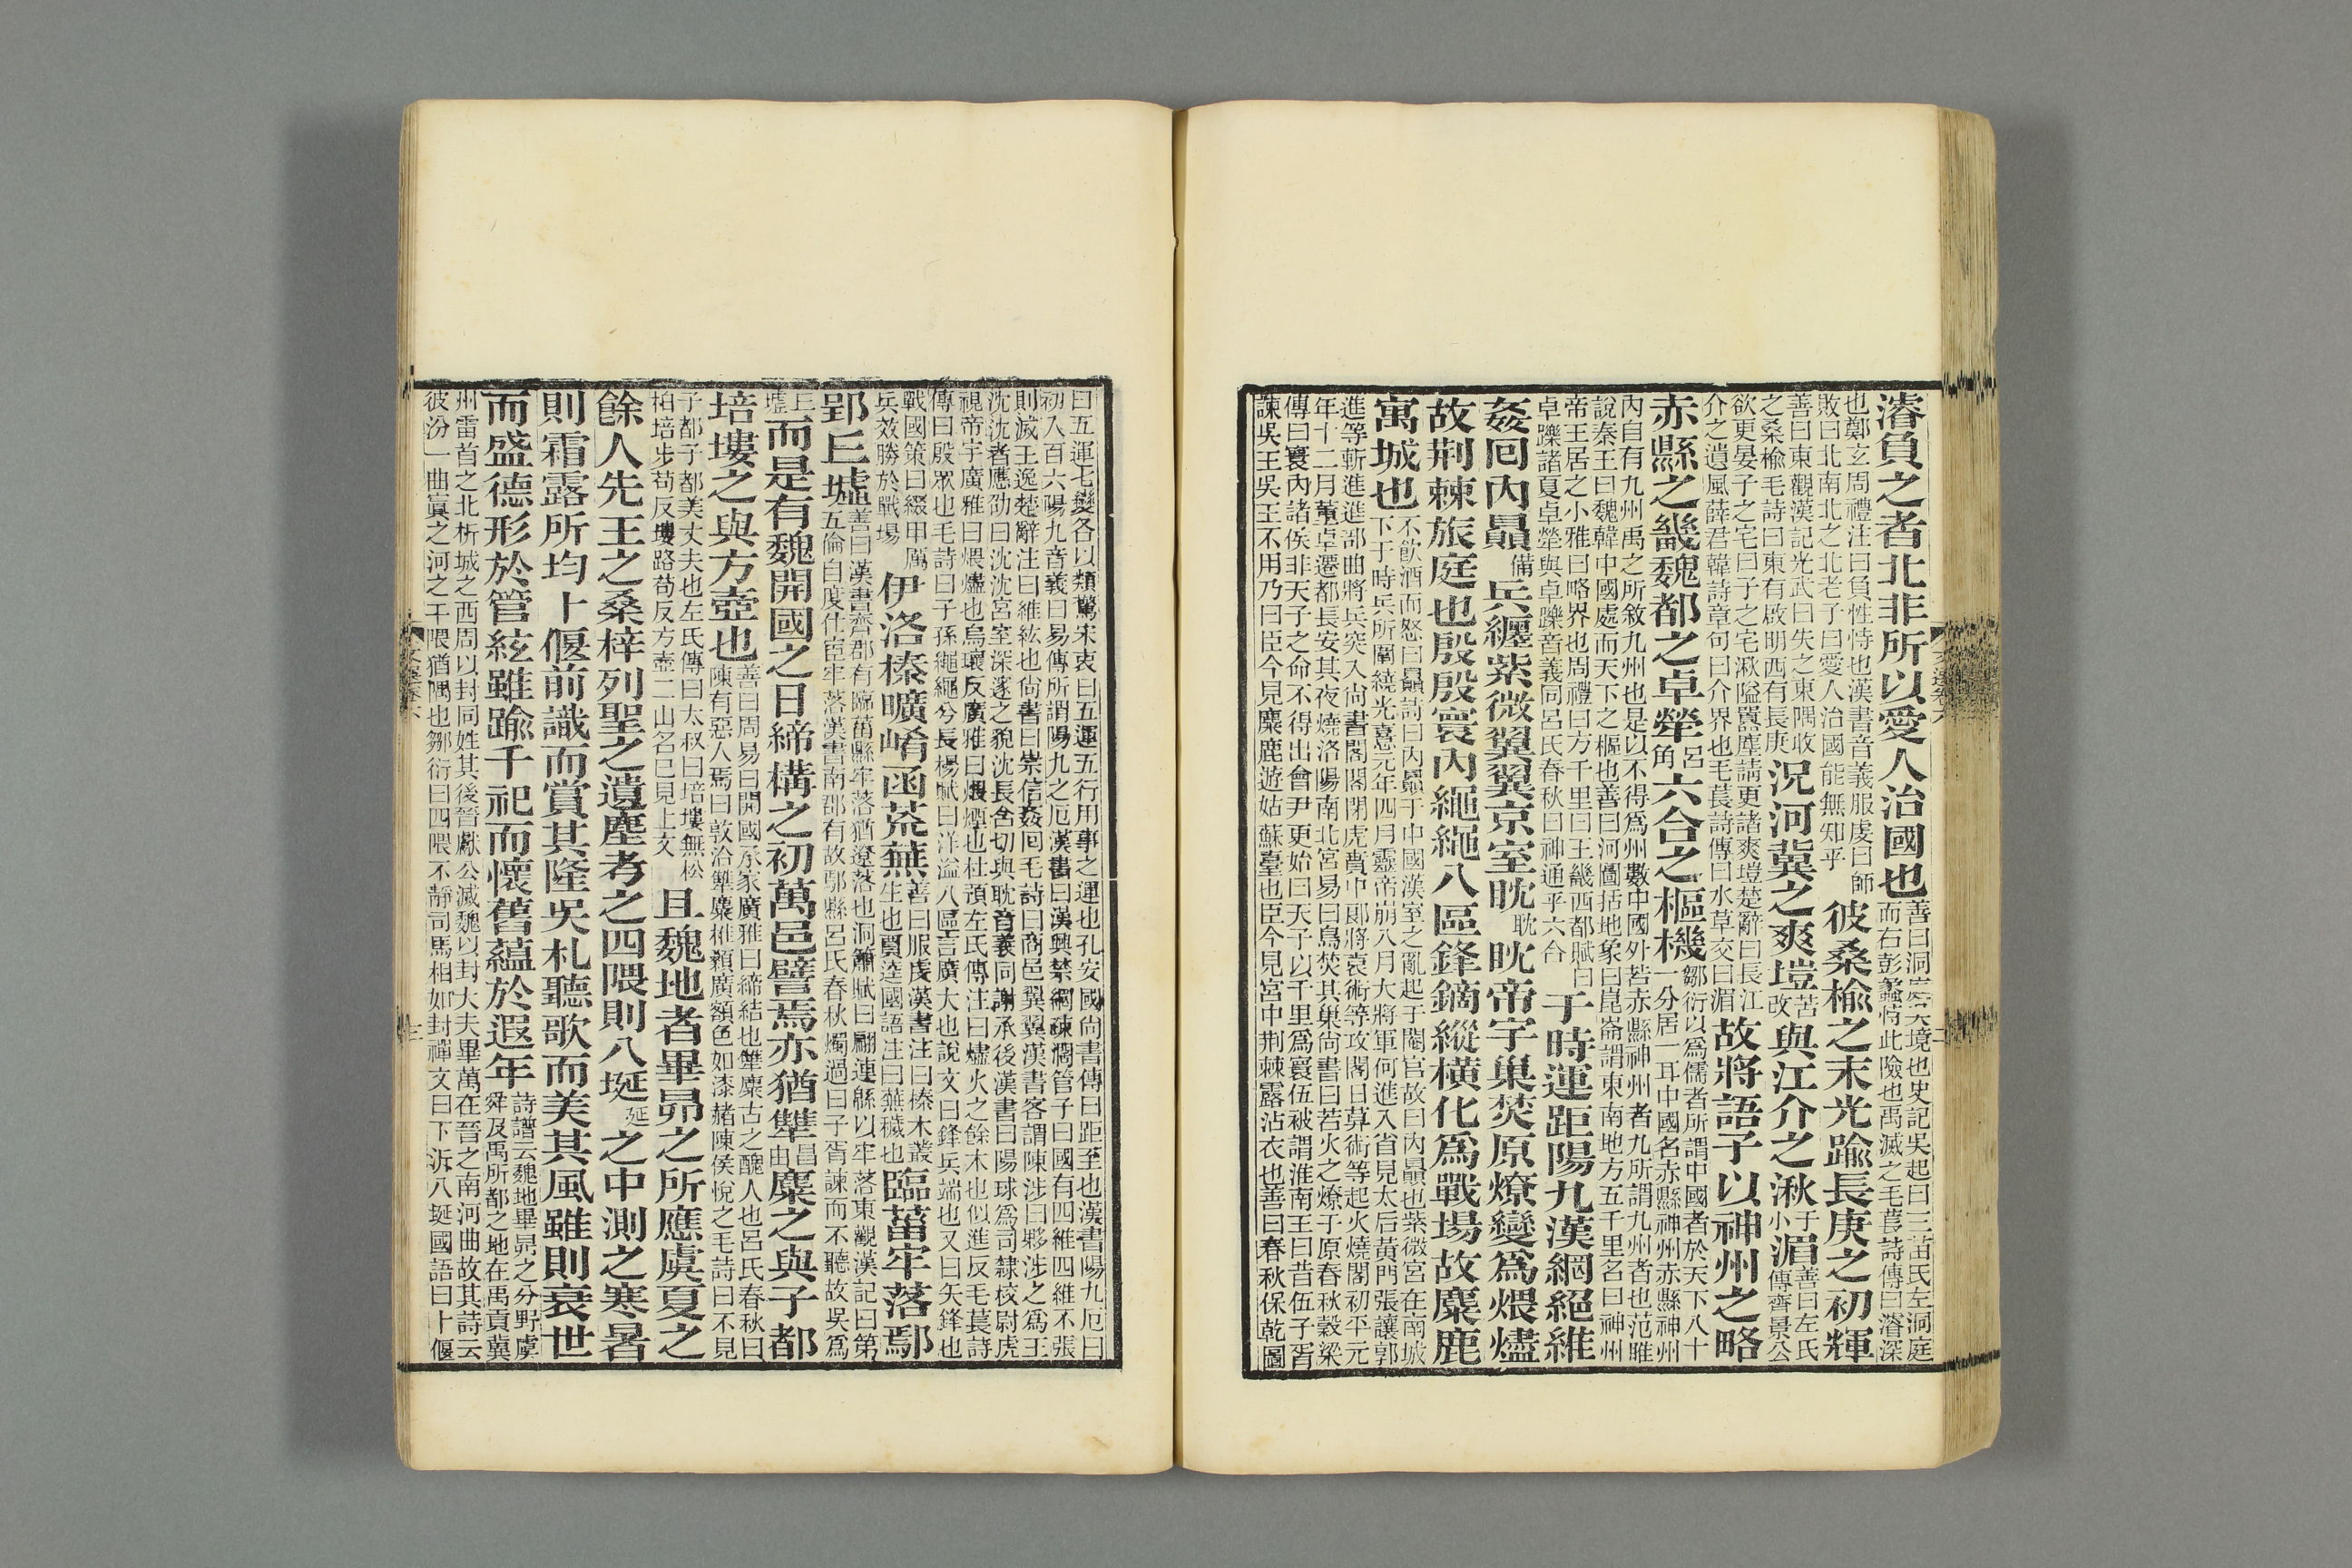 濬負之者北非所以愛人治國也
善曰洞庭大境也史記吳起曰三苗氏左洞庭
而右彭蠡恃此險也禹滅之毛萇詩傳曰濬深
也鄭玄周禮注曰負性恃也漢書音義服虔曰師
敗曰北南北之北老子曰愛人治國能無知乎
彼桑榆之末光踰長庚之初輝
善曰東觀漢記光武曰失之東隅收
之桑榆毛詩曰東有啟明西有長庚
況河冀之爽塏苦改與江介之湫子小湄
善曰左氏
傳齊景公
欲更晏子之宅曰子之宅湫隘囂塵請更諸爽塏楚辭曰長江
介之遺風薛君韓詩章句曰介界也毛萇詩傳曰水草交曰湄
故將語子以神州之略
赤縣之畿魏都之卓犖呂角六合之樞機
鄒衍以爲儒者所謂中國者於天下八十
一分居一耳中國名赤縣神州赤縣神州
內自有九州禹之所敘九州也是以不得爲州數中國外若赤縣神州者九所謂九州者也范雎
說秦王曰魏韓中國處而天下之樞也善曰河圖括地象曰崑崙謂東南地方五千里名曰神州
帝王居之小雅曰略界也周禮曰方千里曰王畿西都賦曰
卓躒諸夏卓犖與卓躒音義同呂氏春秋曰神通乎六合
于時運距陽九漢綱絕維
姦回內贔備兵纏紫微翼翼京室眈耽眈帝宇巢焚原燎變爲煨燼
故荆棘旅庭也殷殷寰內繩繩八區鋒鏑縱橫化爲戰場故麋鹿
寓城也
不飮酒而怒曰贔詩曰內贔于中國漢室之亂起于閹官故曰內贔也紫微宮在南城
下于時兵所圍繞光憙元年四月靈帝崩八月大將軍何進入省見太后黃門張讓郭
進等斬進進部曲將兵突入尙書閣閣閉虎賁中郞將袁術等攻閣日莫術等起火燒閣初平元
年十二月董卓遷都長安其夜燒洛陽南北宮易曰鳥焚其巢尙書曰若火之燎于原春秋穀梁
傳曰寰內諸侯非天子之命不得出會尹更始曰天子以千里爲寰伍被謂淮南王曰昔伍子胥
諫吳王吳王不用乃曰臣今見麋鹿遊姑蘇臺也臣今見宮中荆棘露沾衣也善曰春秋保乾圖
曰五運七變各以類驚宋衷曰五運五行用事之運也孔安國尙書傳曰距至也漢書陽九厄曰
初入百六陽九音義曰易傳所謂陽九之厄漢書曰漢興禁網疎濶管子曰國有四維四維不張
則滅王逸楚辭注曰維紘也尙書曰崇信姦回毛詩曰商邑翼翼漢書客謂陳涉曰夥涉之爲王
沈沈者應劭曰沈沈宮室深邃之貌沈長含切與眈音義同謝承後漢書曰陽球爲司隸校尉虎
視帝宇廣雅曰煨燼也烏壞反廣雅曰煨煙也杜預左氏傳注曰燼火之餘木也似進反毛萇詩
傳曰殷眾也毛詩曰子孫繩繩兮長楊賦曰洋溢八區言廣大也說文曰鋒兵端也又曰矢鋒也
戰國策曰綴甲厲
兵效勝於戰場
伊洛榛曠崤函荒蕪
善曰服虔漢書注曰榛木叢
生也賈逵國語注曰蕪穢也
臨菑牢落鄢
郢丘墟
善曰漢書齊郡有臨菑縣牢落猶遼落也洞簫賦曰翩連緜以牢落東觀漢記曰第
五倫自度仕宦牢落漢書南郡有故鄢縣呂氏春秋燭過曰子胥諫而不聽故吳爲
丘
墟
而是有魏開國之日締構之初萬邑譬焉亦猶犨昌由麋之與子都
培塿之與方壺也
善曰周易曰開國承家廣雅曰締結也犨麋古之醜人也呂氏春秋曰
陳有惡人焉曰敦洽犨麋椎顙廣額色如漆赭陳侯悅之毛詩曰不見
子都子都美丈夫也左氏傳曰太叔曰培塿無松
柏培步苟反塿路苟反方壺二山名已見上文
且魏地者畢昴之所應虞夏之
餘人先王之桑梓列聖之遺塵考之四隈則八埏延之中測之寒暑
則霜露所均卜偃前識而賞其隆吳札聽歌而美其風雖則衰世
而盛德形於管絃雖踰千祀而懷舊蘊於遐年
詩譜云魏地畢昴之分野虞
舜及禹所都之地在禹貢冀
州雷首之北析城之西周以封同姓其後晉獻公滅魏以封大夫畢萬在晉之南河曲故其詩云
彼汾一曲寘之河之干隈猶隅也鄒衍曰四隈不靜司馬相如封禪文曰下泝八埏國語曰卜偃